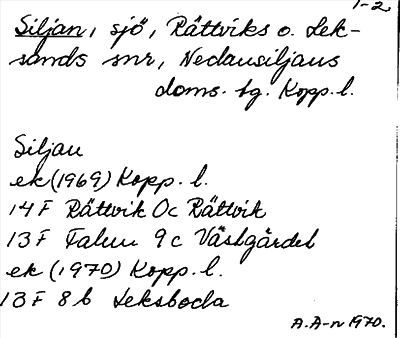 1-2
Siljan, sjö, Rättviks o. Lek-
sands snr, Nedansiljans
doms. tg. Kopp. l.
Siljan
ek (1969) Kopp. l.
14 F Rättvik 0c Rättvik
13 F Falun 9c Västgärdet
ek (1970) Kopp. l.
13 F 8b Leksboda
A.A-n 1970.